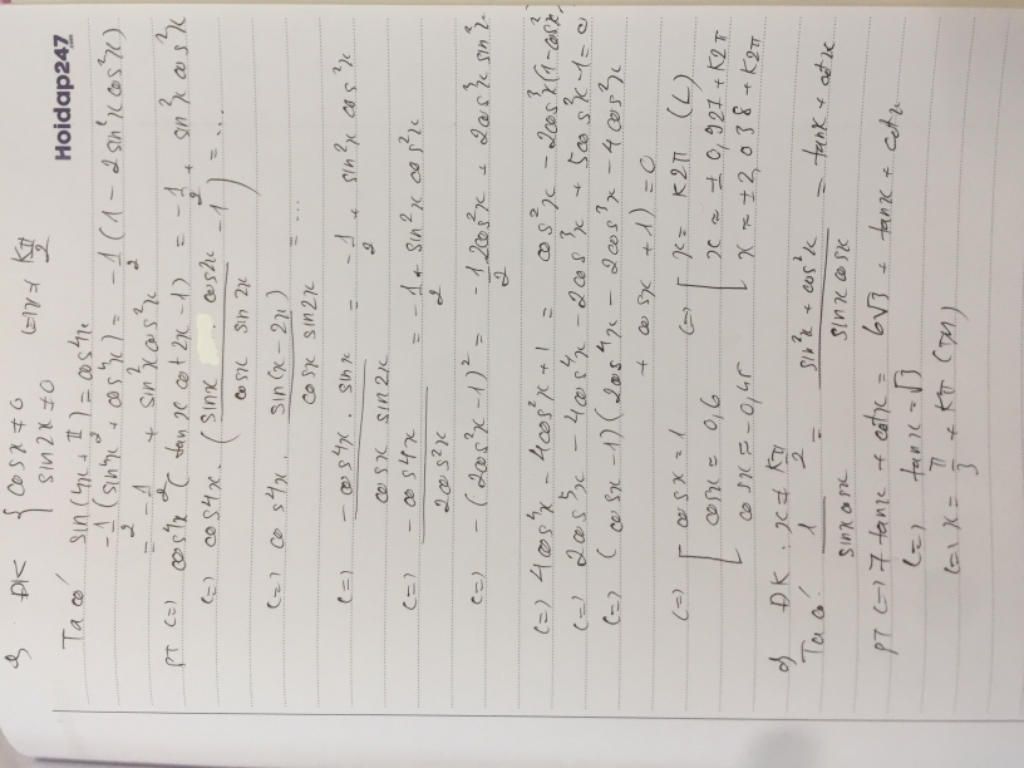 Hoidap247
c) ĐK { cosx ≠ 0
sin2x ≠ 0 (=) x ≠ Kπ/2
Ta có: sin(4x + π/2) = cos4x
-1/2 (sin⁴x + cos⁴x) = -1/2 (1 - 2sin²xcos²x)
= -1/2 + sin²xcos²x
PT (=) cos4x (tanx cot2x - 1) = -1/2 + sin²x cos²x
(=) cos4x. (sinx . cos2x / cosx sin2x - 1) = ...
(=) cos4x. sin(x-2x) / cosx sin2x = ...
(=) -cos4x. sinx / cosx sin2x = -1/2 + sin²x cos²x
(=) -cos4x / 2cos²x = -1/2 + sin²x cos²x
(=) -(2cos²x-1)² = -1/2 2cos²x + 2cos²x sin²x
(=) 4cos⁴x - 4cos²x + 1 = cos²x - 2cos³x(1-cos²x)
(=) 2cos⁵x - 4cos⁴x - 2cos³x + 5cos²x - 1 = 0
(=) (cosx - 1)(2cos⁴x - 2cos³x - 4cos²x
+ cosx + 1) = 0
(=) [ cosx = 1 (=) [ x = K2π (L)
cosx = 0,6 x ≈ ±0,927 + K2π
cosx = -0,45 x ≈ ±2,038 + K2π
d) ĐK: x ≠ Kπ/2
Ta có: 1 / sinxcosx = sin²x + cos²x / sinxcosx = tanx + cotx
PT (=) 7tanx + cotx = 6√3 + tanx + cotx
(=) tanx = √3
(=) x = π/3 + Kπ (TM)